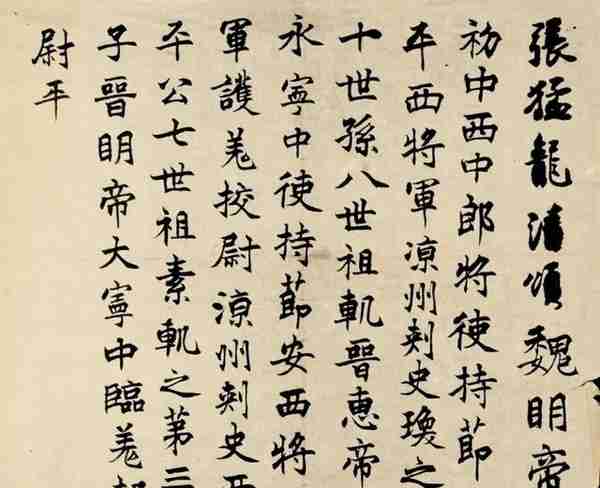 張猛龍清頌魏明帝
初中西中郎將使持節
平西將軍涼州刾史瓊之
十世孫八世祖軌晉惠帝
永寧中使持節安西將
軍護羌挍尉涼州刾史西
平公七世祖素軌之第三
子晉明帝大寧中臨羌都
尉平